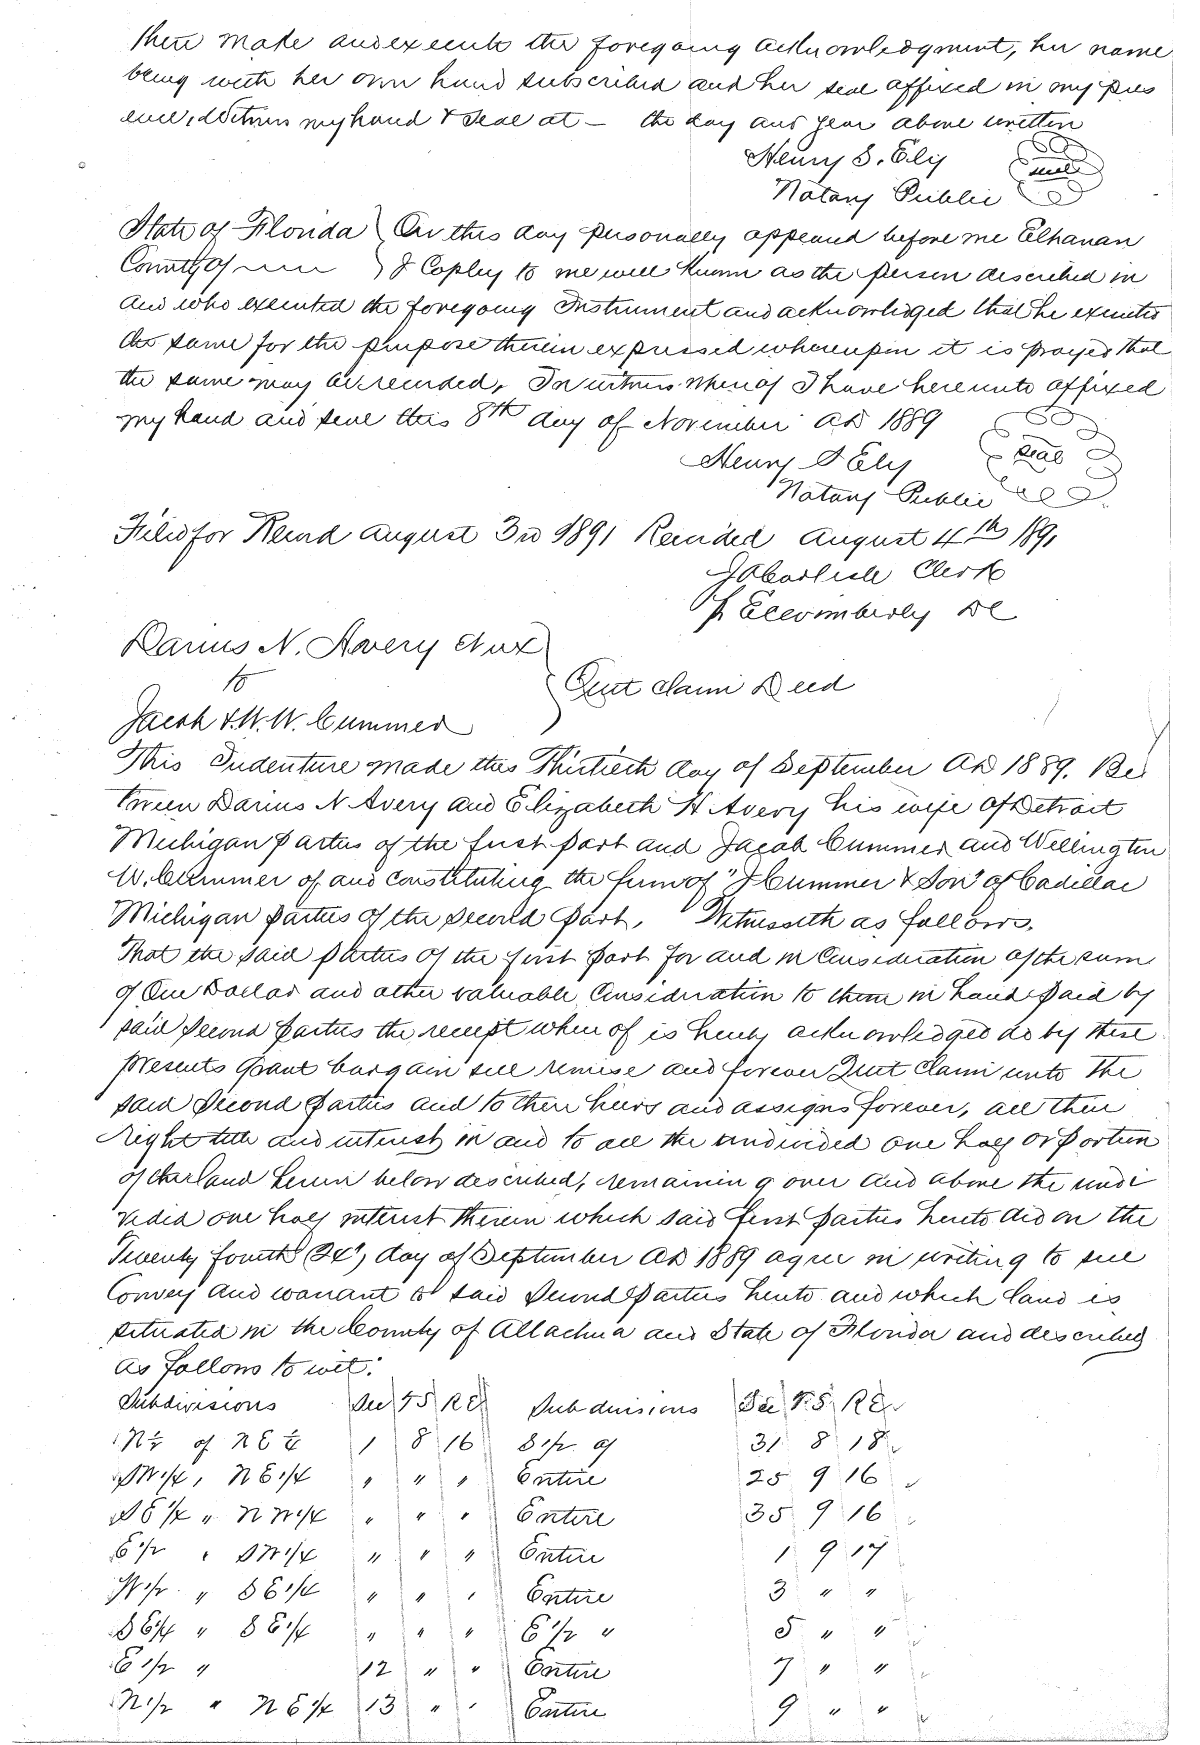 then make and execute the foregoing acknowledgment, her name
being with her own hand subscribed and her seal affixed in my pres
ence, Witness my hand & seal at — the day and year above written
Henry S. Ely seal
Notary Public
State of Florida } On this day personally appeared before me Elhanan
County of } J Copley to me well known as the person described in
and who executed the foregoing Instrument and acknowledged that he executed
the same for the purpose therein expressed whereupon it is prayed that
the same may be recorded, In witness whereof I have hereunto affixed
my hand and seal this 8th day of November AD 1889
Henry S Ely seal
Notary Public
Filed for Record August 3rd 1891 Recorded August 4th 1891
J A Carlisle Clerk
Wimberly DC
Darius N. Avery et ux
to } Quit Claim Deed
Jacob & W. W. Cummer
This Indenture made this Thirtieth day of September AD 1889. Be
tween Darius N Avery and Elizabeth H Avery his wife of Detroit
Michigan parties of the first part and Jacob Cummer and Wellington
W. Cummer of and constituting the firm of "J Cummer & Son" of Cadillac
Michigan parties of the second part, Witnesseth as follows.
That the said parties of the first part for and in Consideration of the sum
of One Dollar and other valuable Consideration to them in hand paid by
said second parties the receipt whereof is hereby acknowledged do by these
presents grant bargain sell remise and forever Quit Claim unto the
said second parties and to their heirs and assigns forever, all their
right title and interest in and to all the undivided one half or portion
of the land herein below described, remaining over and above the undi
vided one half interest therein which said first parties hereto did on the
Twenty fourth (24) day of September AD 1889 agree in writing to sell
Convey and warrant to said Second Parties hereto and which land is
situated in the County of Allachua and State of Florida and described
as follows to wit:
Subdivisions Sec T.S R E Subdivisions Sec T.S. R E
N½ of NE¼ 1 8 16 S 1/2 of 31 8 18
SW1/4, NE1/4 " " " Entire 25 9 16
SE1/4 " NW1/4 " " " Entire 35 9 16
E1/2 " SW1/4 " " " Entire 1 9 17
W1/2 " SE1/4 " " " Entire 3 " "
SE1/4 " SE1/4 " " " E1/2 " 5 " "
E1/2 " 12 " " Entire 7 " "
N1/2 " NE1/4 13 " " Entire 9 " "